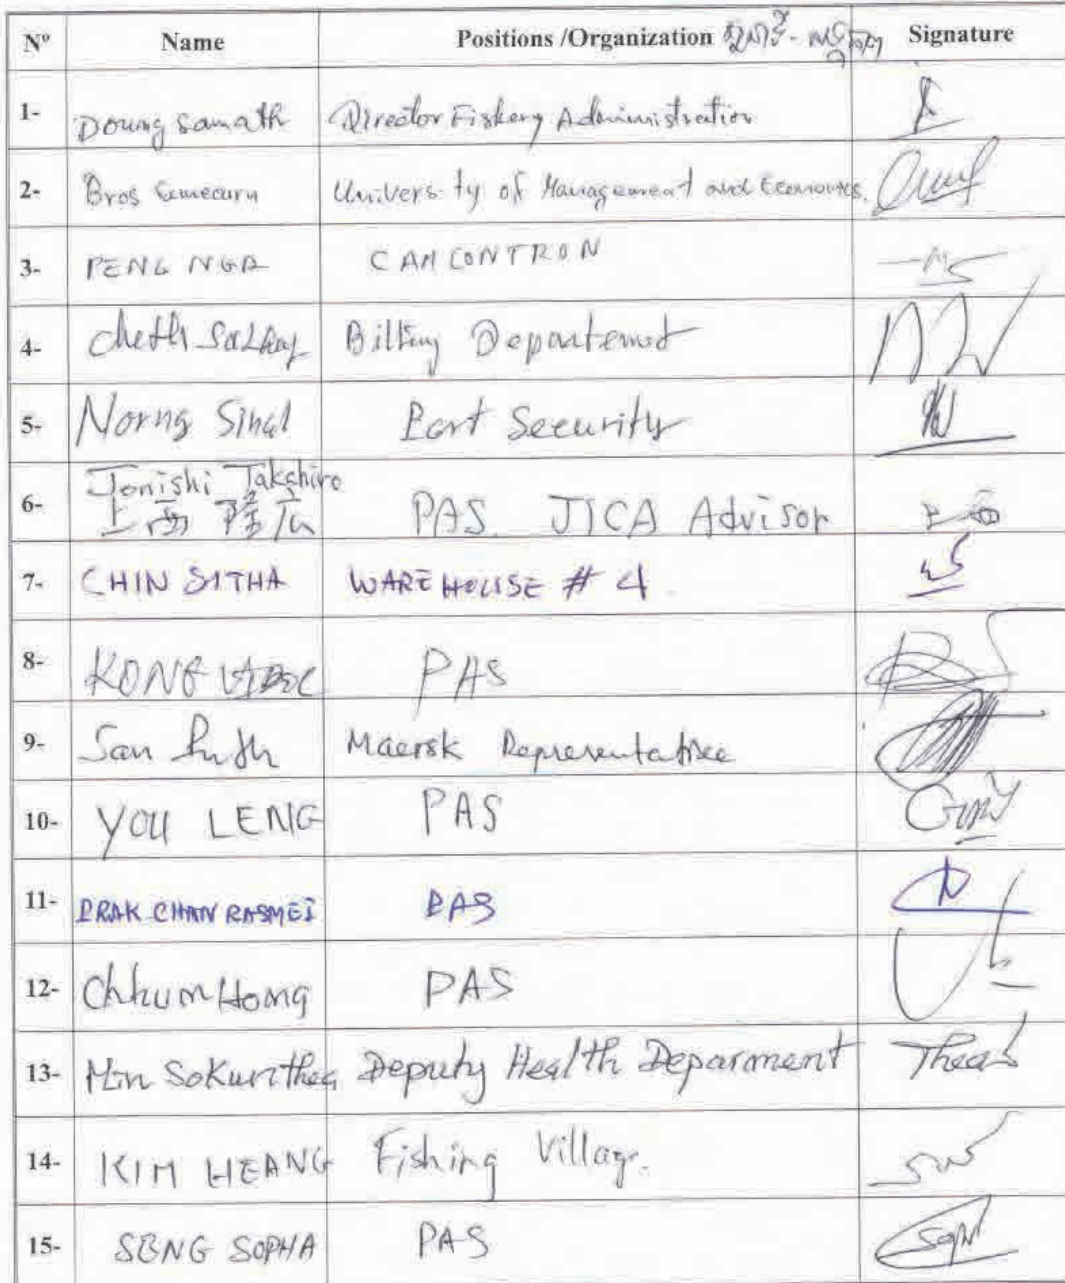 Nº Name Positions /Organization Signature
1- Doung Samath Director Fishery Administration
2- Bros University of Management and Economics.
3- PENG NGA CAMCONTRON
4- Cheth Billing Departemnt
5- Norng Sinal Port Security
6- Jonishi Takahiro
上西 隆広 PAS. JICA Advisor 上西
7- CHIN SITHA WAREHOUSE # 4
8- KONG PAS
9- San Maersk Representative
10- YOU LENG PAS
11- PRAK CHAN RASMEI PAS
12- Chhum Hong PAS
13- Min Sokunthea Deputy Health Deparment Thea
14- KIM HEANG Fishing Village.
15- SENG SOPHA PAS